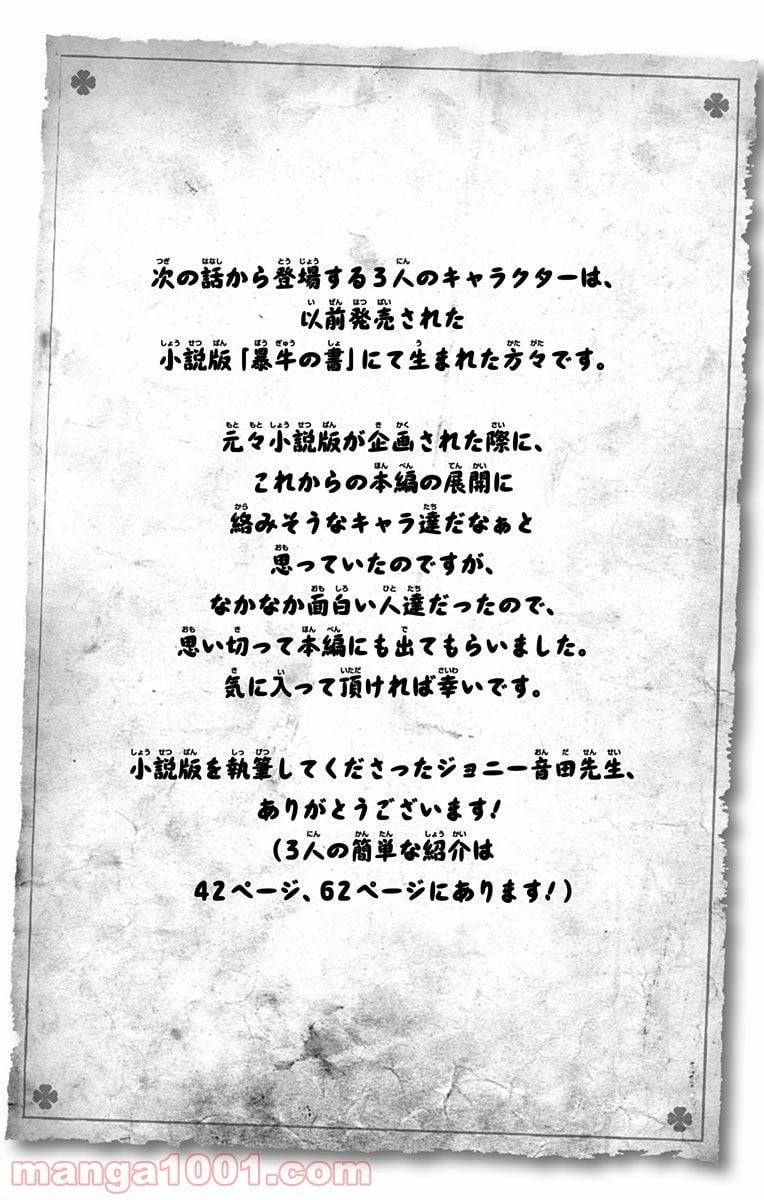 次の話から登場する3人のキャラクターは、
以前発売された
小説版「暴牛の書」にて生まれた方々です。
元々小説版が企画された際に、
これからの本編の展開に
絡みそうなキャラ達だなぁと
思っていたのですが、
なかなか面白い人達だったので、
思い切って本編にも出てもらいました。
気に入って頂ければ幸いです。
小説版を執筆してくださったジョニー音田先生、
ありがとうございます!
(3人の簡単な紹介は
42ページ、62ページにあります!)
manga1001.com